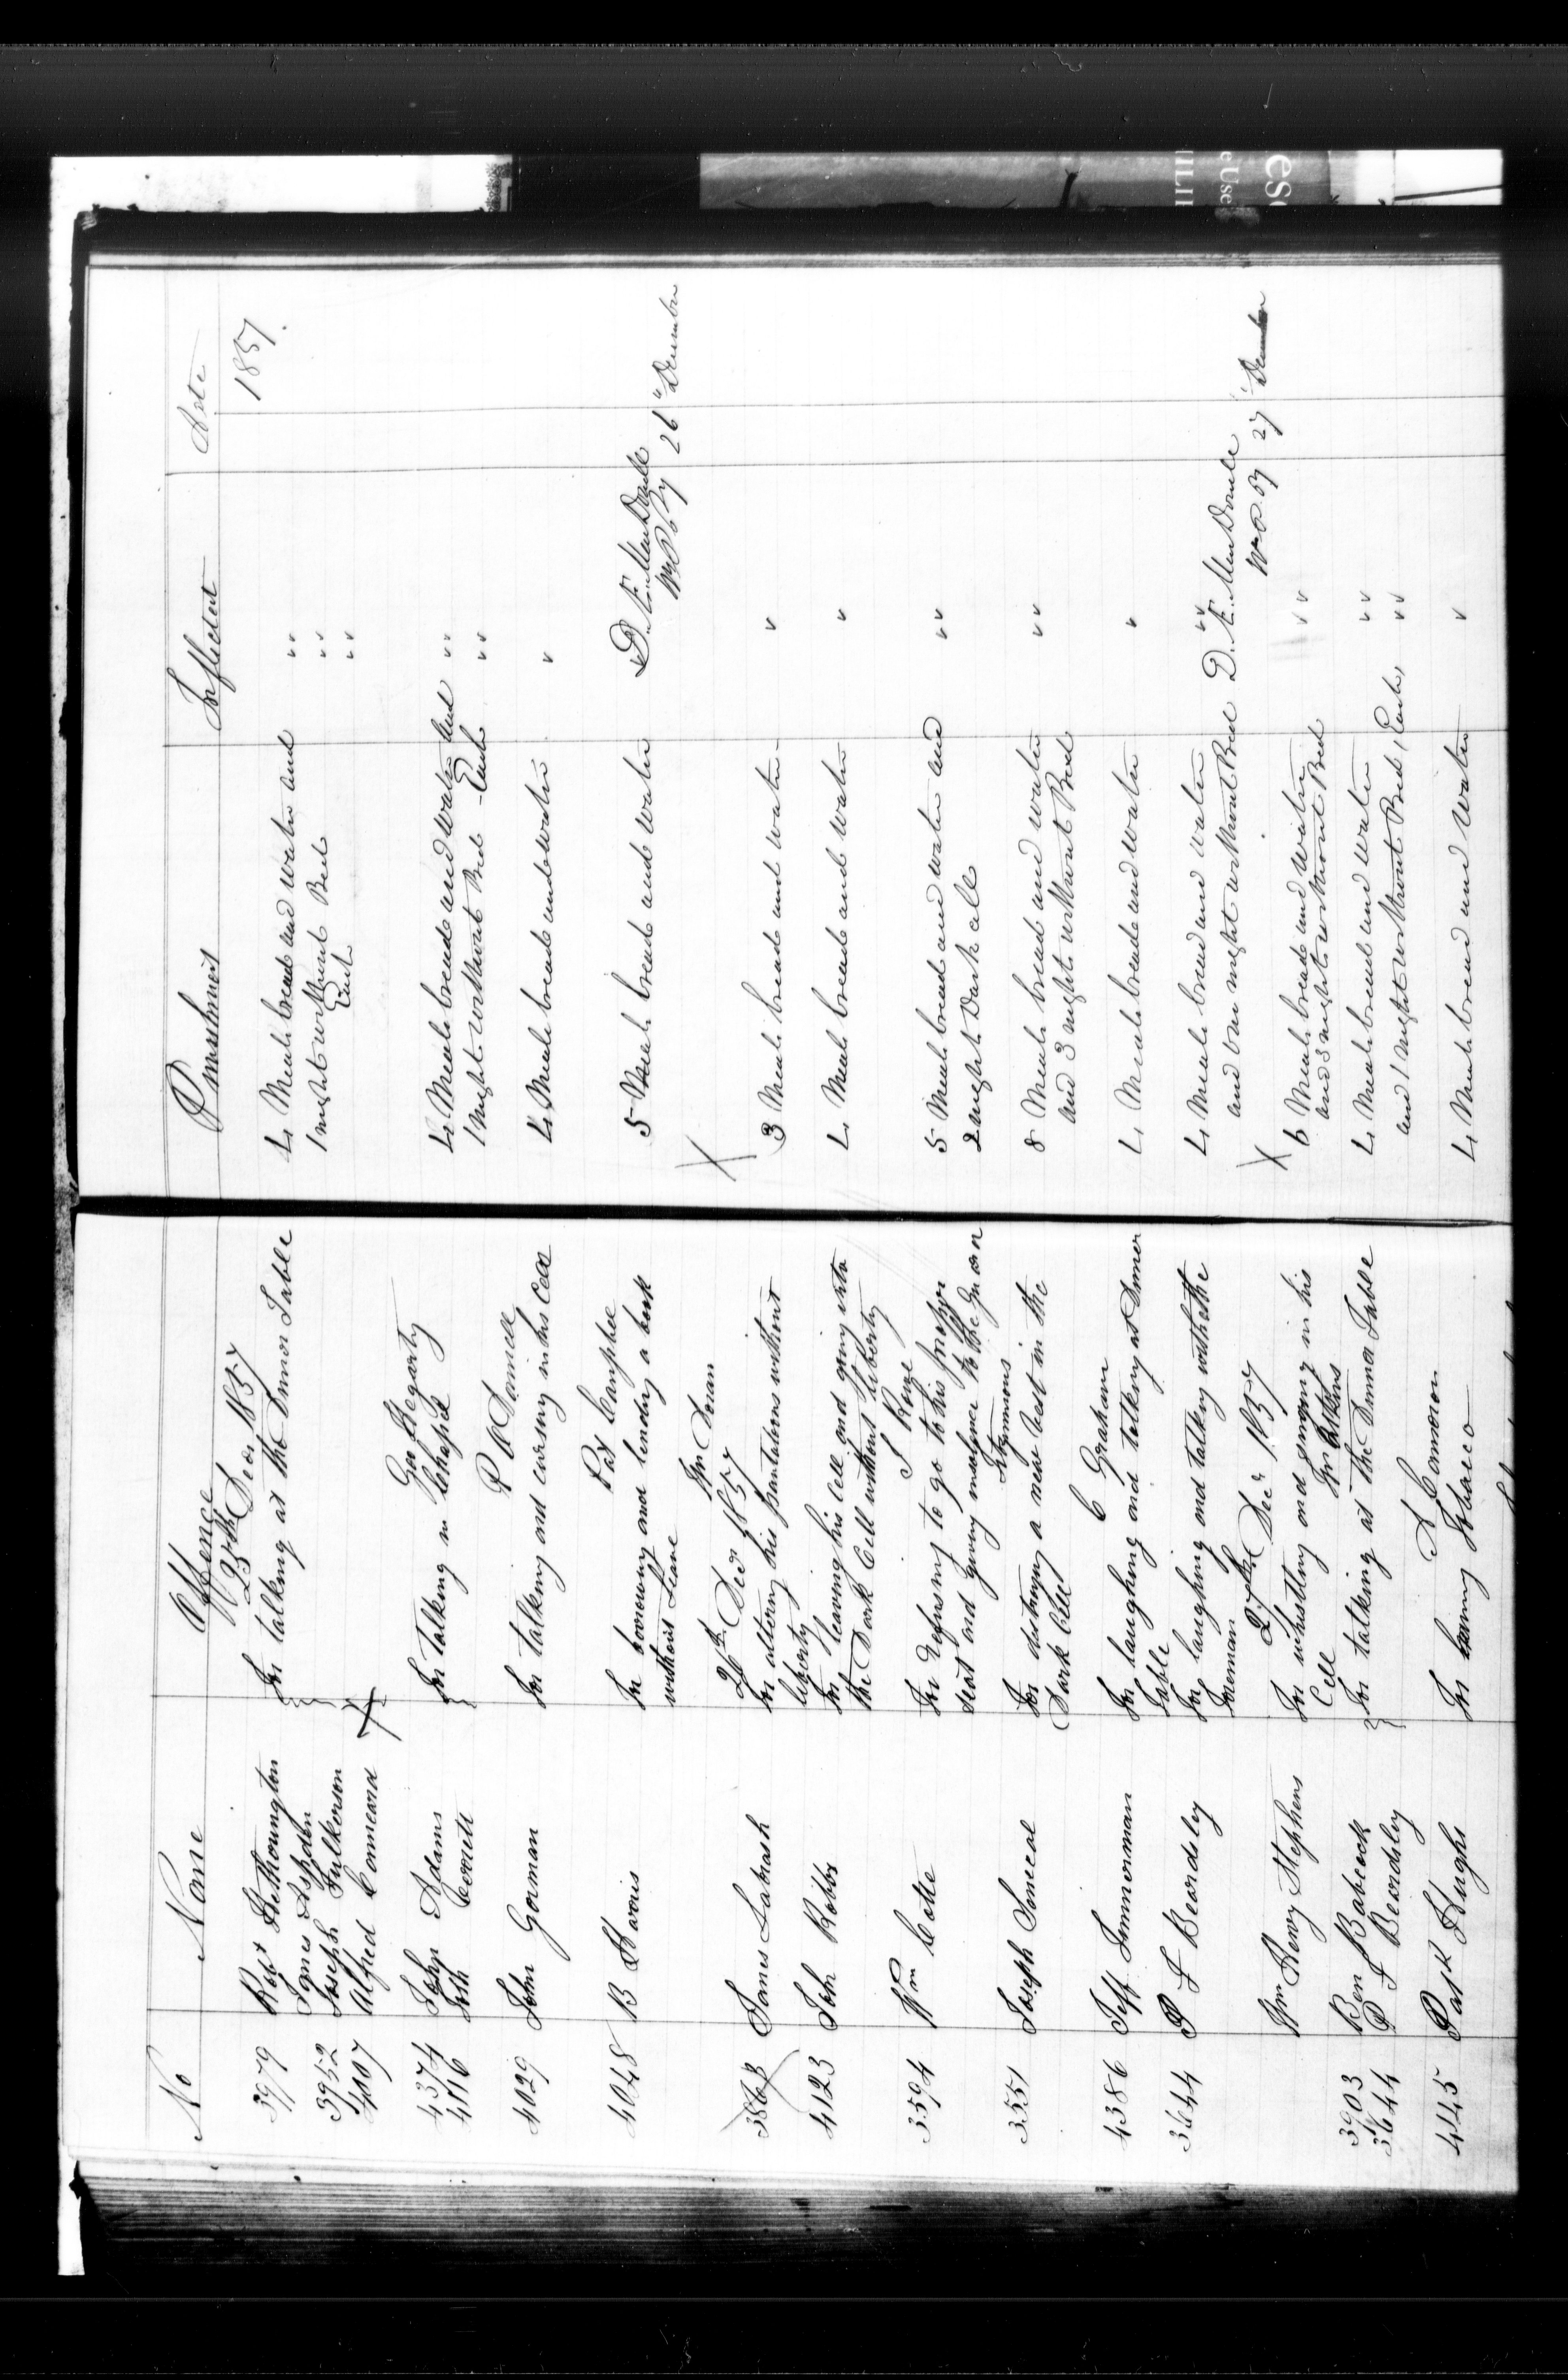 No Name Offence Punishment Inflicted Date
25th Decr 1857 1857.
3979 Robt Hethrington For talking at the Dinner Table 4 Meals bread and water and " "
James Aspden 1 night without Bed " "
3952 Joseph Fulkerson Each " "
4007 Alfred Conneard
Geo Hegarty
4374 John Adams For talking in Chapel 4 Meals bread and water and " "
4116 Josh Corrill 1 night without Bed - Each " "
P O Donnell
4029 John Gorman For talking and cursing in his Cell 4 Meals bread and water "
Pat Campbell
4048 B Harris For borrowing and lending a book 5 Meals bread and water D. Æ. MacDonell
without Leave W.P.P.y 26" December
Wm Doran
26th Decr 1857
3863 James Labrash For altering his pantaloons without 3 Meals bread and water "
liberty
4123 John Robbs For leaving his Cell and going into 4 Meals bread and water "
the Dark Cell without liberty
J Rowe
3594 Wm Cotte For Refusing to go to his proper 5 Meals bread and water and " "
seat and giving insolence to the Guard 2 nights Dark Cell
Fitzimmons
3551 Joseph Senecal For destroying a new vest in the 8 Meals bread and water " "
Dark Cell and 3 nights without Bed
C Graham
4386 Jeff Timmerman For laughing and talking at Dinner 4 Meals bread and water "
Table
3644 P F Beardsley For laughing and talking with the 4 Meals bread and water " "
Foreman and one night without Bed D. Æ. MacDonell
27th Decr 1857 W.P.P.y 27 December
Wm Henry Stephens For whistling and in his 6 Meals bread and water " "
Cell and 3 nights without Bed
Jno Atkins
3903 Ben Babcock For talking at the Dinner Table 4 Meals bread and water " "
3644 P F Beardsley and 1 night without Bed, Each, " "
A Cameron
445 Patk Hughs For having Tobacco 4 Meals bread and water "
ese
e Use